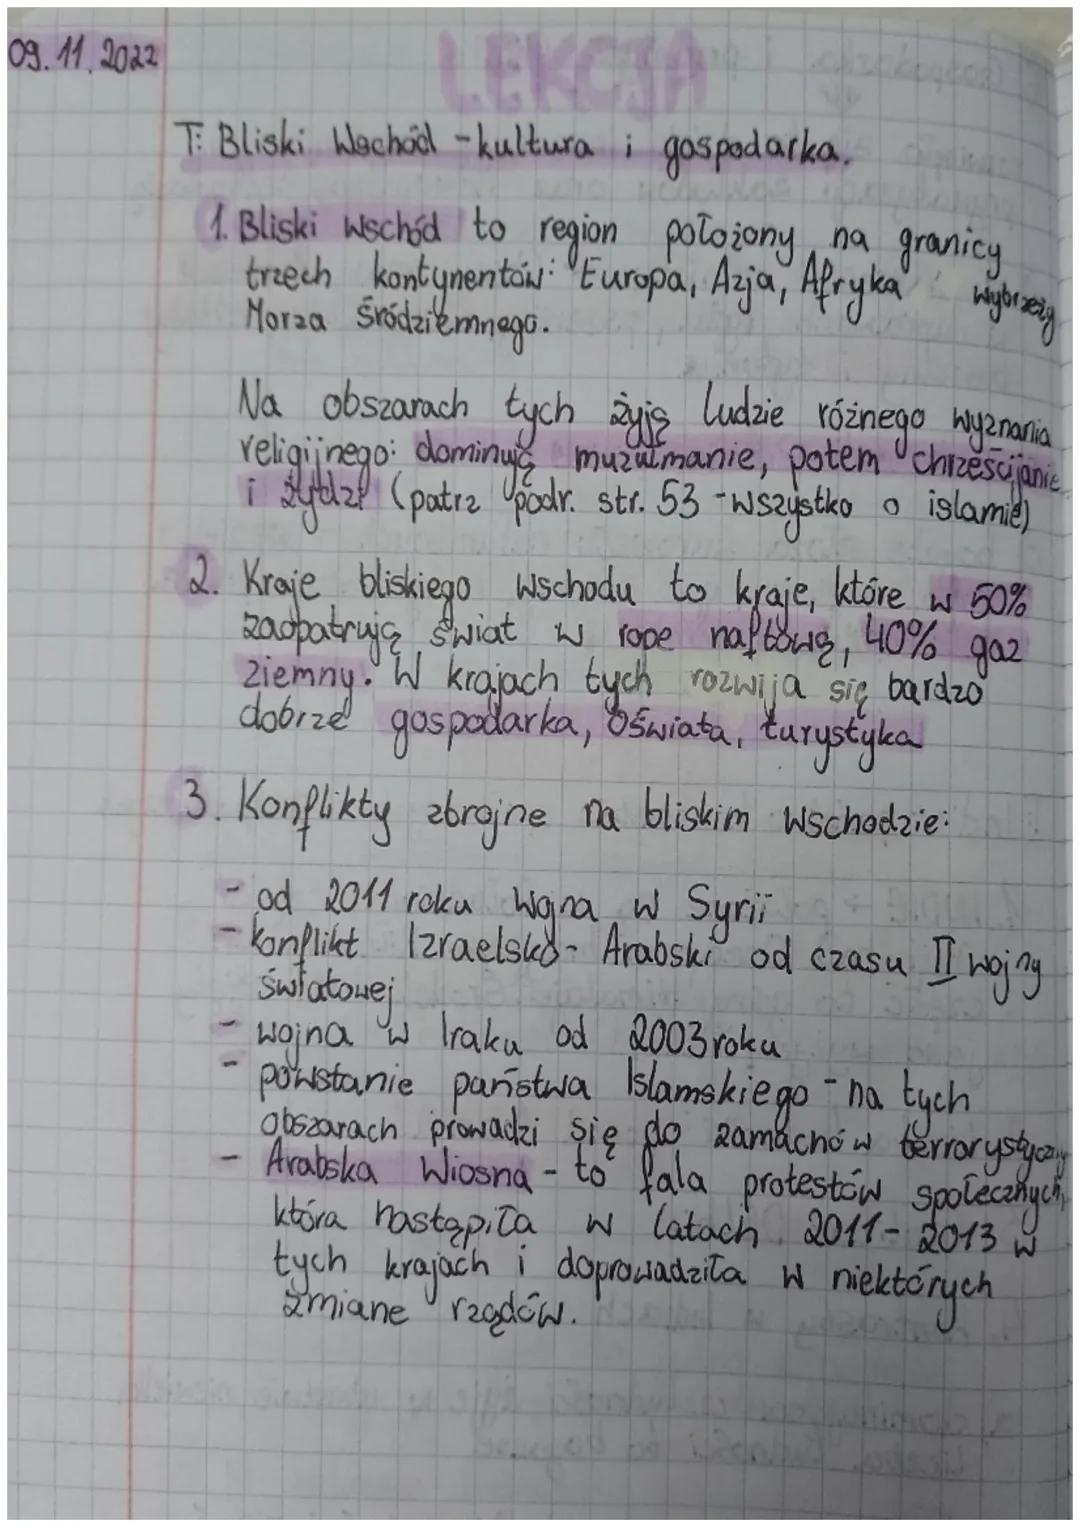 09.11.2022
LEKCJA
T: Bliski Wschód - kultura i gospodarka.
1. Bliski Wschód to region położony na granicy
trzech kontynentów: Europa, Azja, Afryka wybrzeży
Morza Śródziemnego.
Na obszarach tych żyją ludzie różnego wyznania
religijnego: dominują muzułmanie, potem chrześcijanie
i żydzi (patrz podr. str. 53 - wszystko o islamie)
2. Kraje bliskiego Wschodu to kraje, które w 50%
zaopatrują świat w ropę naftową, 40% gaz
ziemny. W krajach tych rozwija się bardzo
dobrze gospodarka, oświata, turystyka
3. Konflikty zbrojne na bliskim Wschodzie:
- od 2011 roku wojna w Syrii
- konflikt Izraelsko - Arabski od czasu II wojny
światowej
- wojna w Iraku od 2003 roku
- powstanie państwa Islamskiego - na tych
obszarach prowadzi się do zamachów
- Arabska Wiosna - to fala protestów społecznych,
która nastąpiła w latach 2011-2013 w
tych krajach i doprowadziła w niektórych
zmianę rządów.